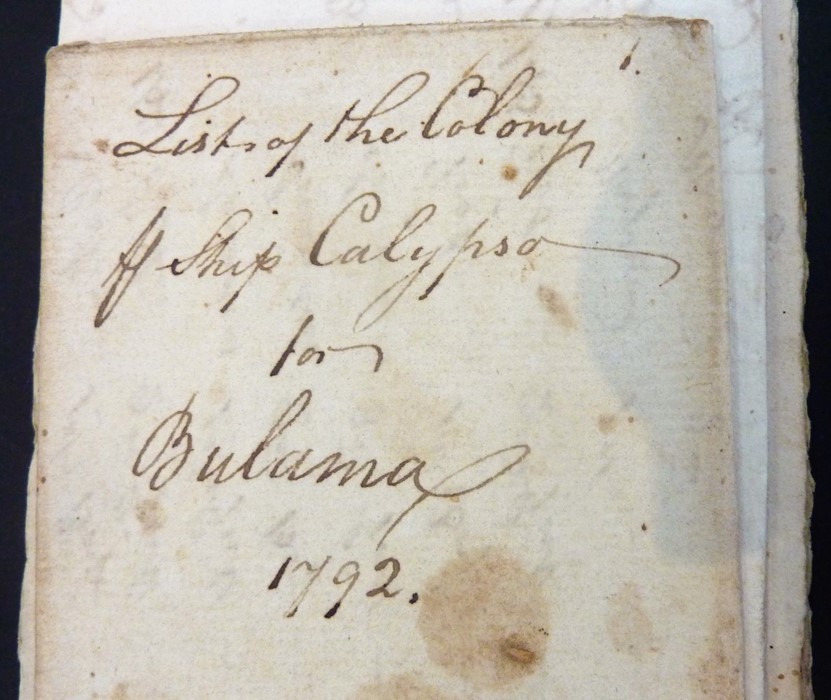 1.
List of the Colony
⅌ Ship Calypso
for
Bulama
1792.